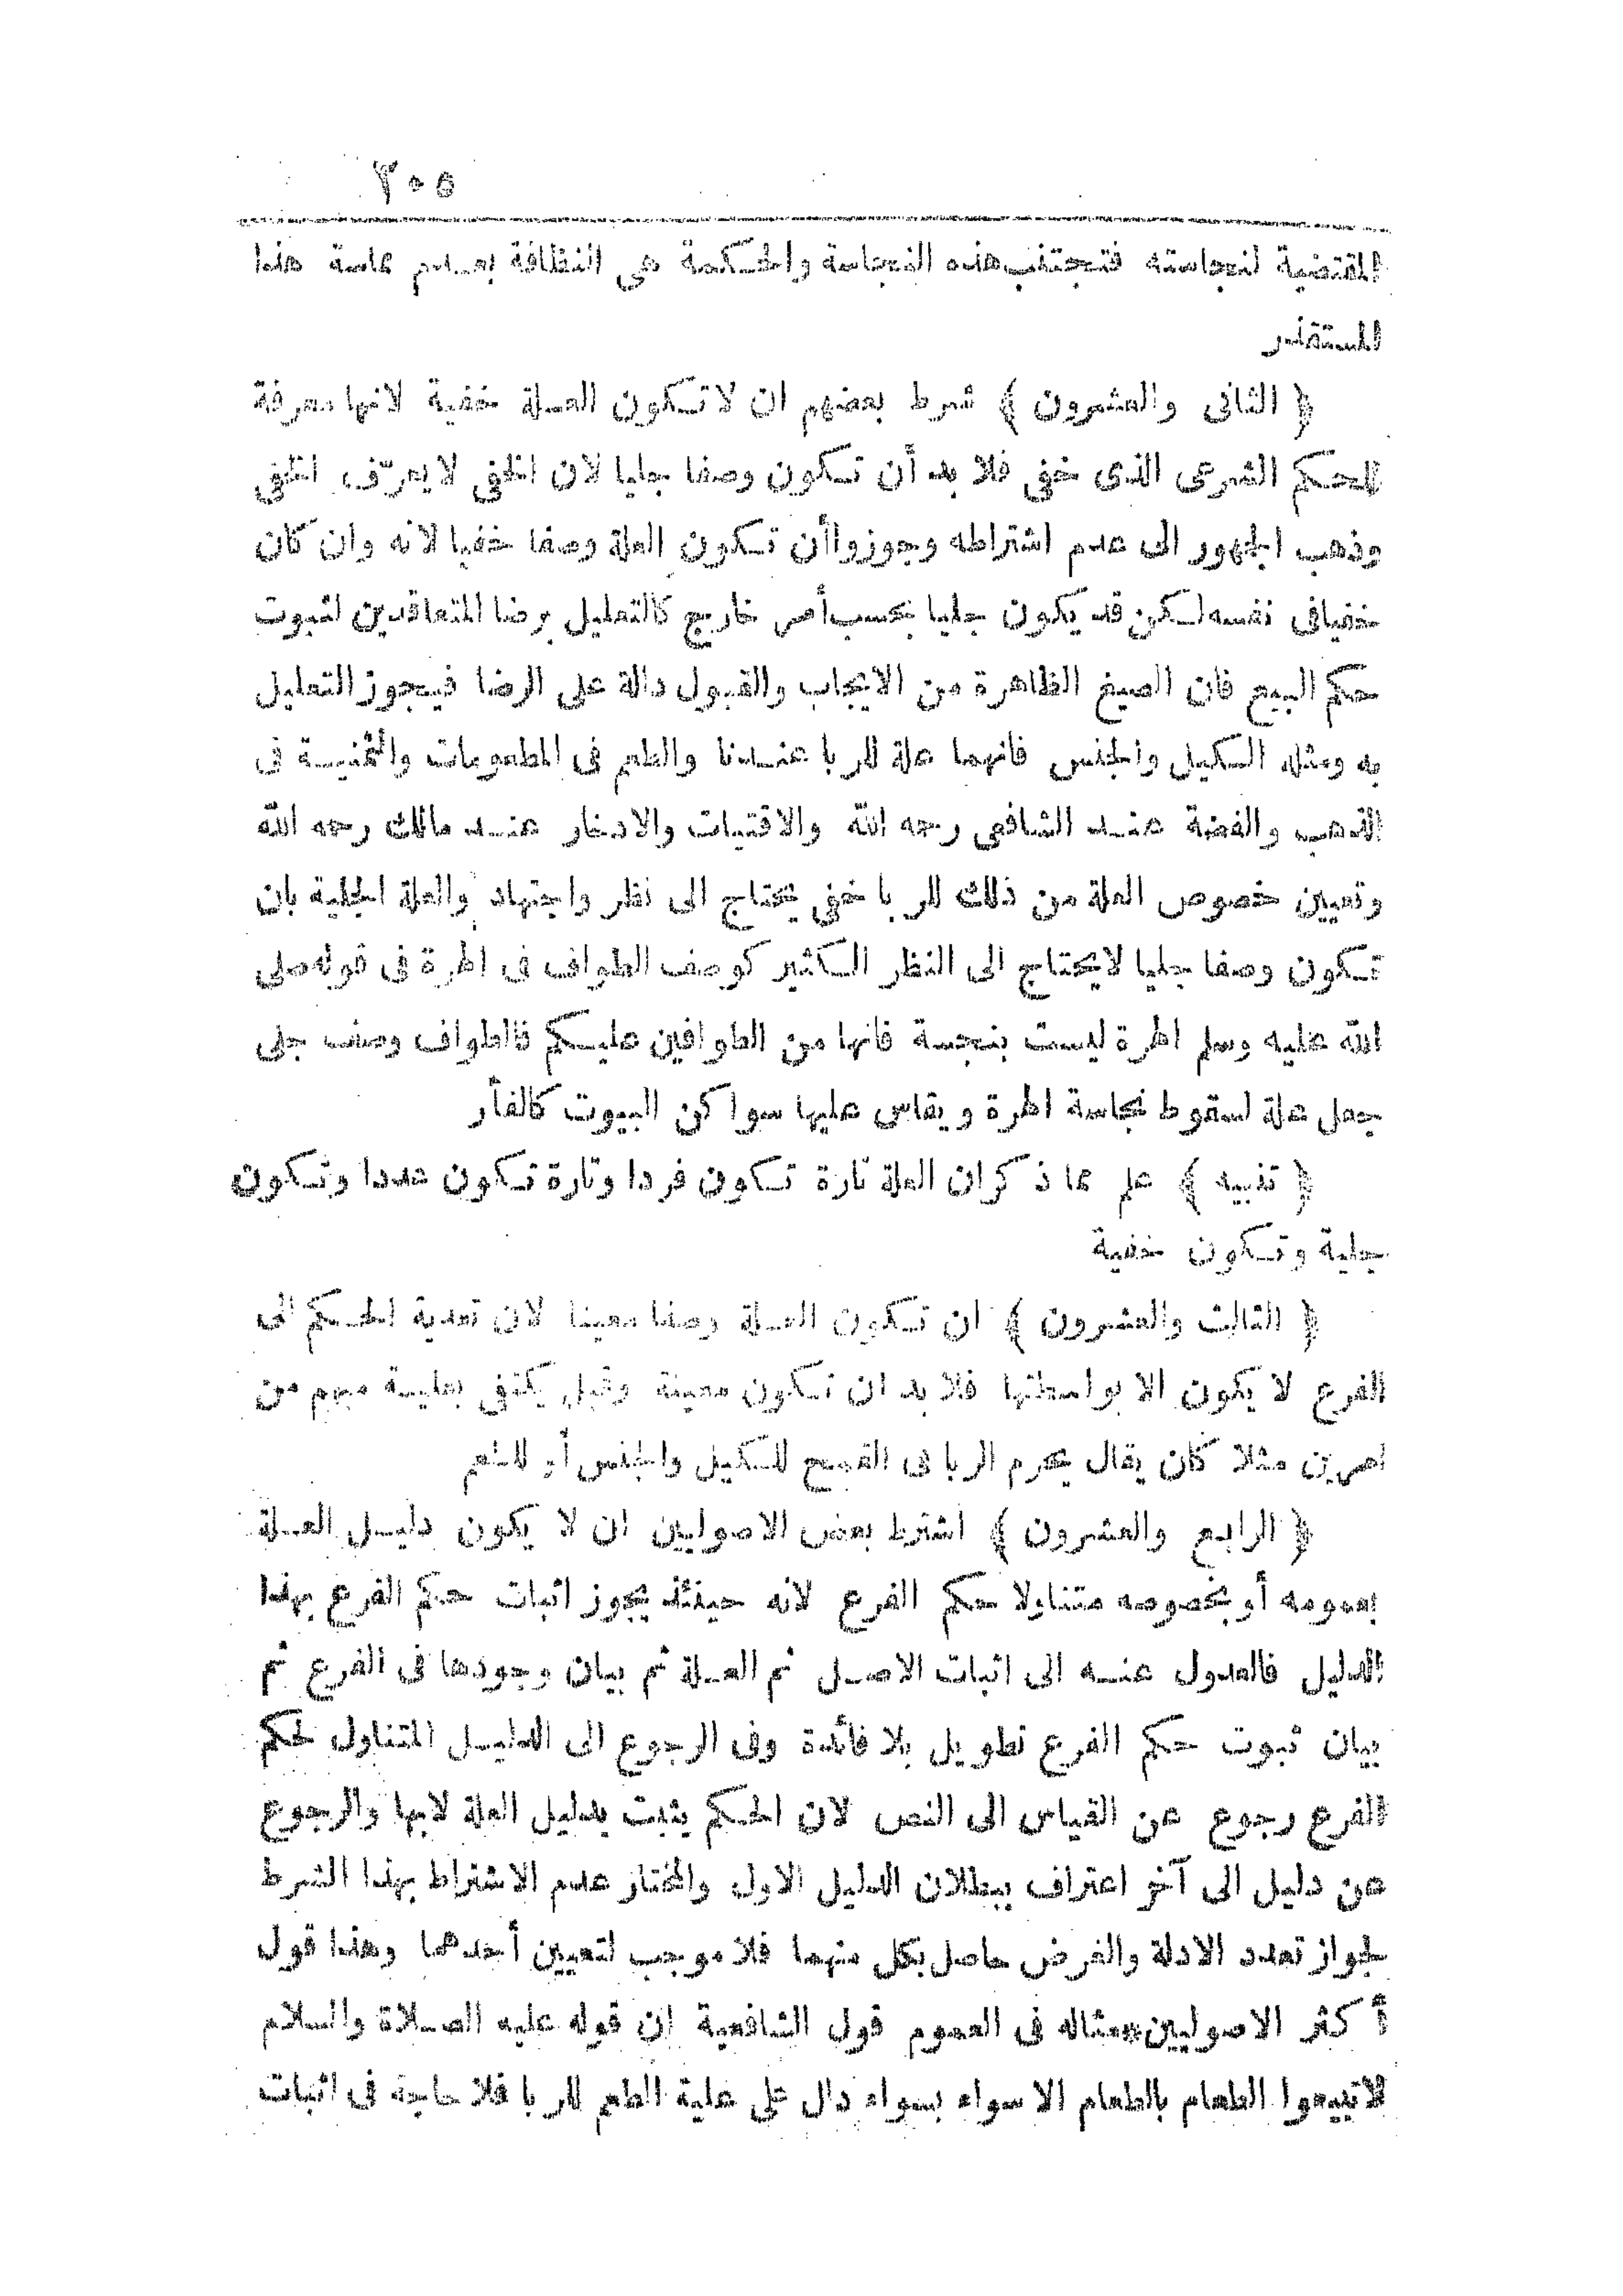 ٣٠٥
المقتضية لنجاسته فتجتنب هذه النجاسة والحكمة هى النظافة بعدم مماسة هذا
المستقذر
﴿ الثانى والعشرون ﴾ شرط بعضهم ان لا تكون العلة خفية لانها معرفة
للحكم الشرعى الذى خفى فلا بد أن تكون وصفا جليا لان الخفى لا يعرّف الخفى
وذهب الجمهور الى عدم اشتراطه وجوزوا أن تكون العلة وصفا خفيا لانه وان كان
خفيا فى نفسه لكن قد يكون جليا بحسب أمر خارج كالتعليل برضا المتعاقدين لثبوت
حكم البيع فان الصيغ الظاهرة من الايجاب والقبول دالة على الرضا فيجوز التعليل
به ومثله الكيل والجنس فانهما علة للربا عندنا والطعم فى المطعومات والثمنية فى
الذهب والفضة عند الشافعى رحمه الله والاقتيات والادخار عند مالك رحمه الله
وتعيين خصوص العلة من ذلك للربا خفى يحتاج الى نظر واجتهاد والعلة الجلية بان
تكون وصفا جليا لا يحتاج الى النظر الكثير كوصف الطواف فى الهرة فى قوله صلى
الله عليه وسلم الهرة ليست بنجسة فانها من الطوافين عليكم فالطواف وصف جلى
جعل علة لسقوط نجاسة الهرة ويقاس عليها سواكن البيوت كالفأر
﴿ تنبيه ﴾ علم مما ذكر ان العلة تارة تكون فردا وتارة تكون عددا وتكون
جلية وتكون خفية
﴿ الثالث والعشرون ﴾ ان تكون العلة وصفا معينا لان تعدية الحكم الى
الفرع لا يكون الا بواسطتها فلا بد ان تكون معينة وقيل يكتفى بعلية مبهم من
امرين مثلا كان يقال يحرم الربا فى القمح للكيل والجنس أو للطعم
﴿ الرابع والعشرون ﴾ اشترط بعض الاصوليين ان لا يكون دليل العلة
بعمومه أو بخصوصه متناولا حكم الفرع لانه حينئذ يجوز اثبات حكم الفرع بهذا
الدليل فالعدول عنه الى اثبات الاصل ثم العلة ثم بيان وجودها فى الفرع ثم
بيان ثبوت حكم الفرع تطويل بلا فائدة وفى الرجوع الى الدليل المتناول لحكم
الفرع رجوع عن القياس الى النص لان الحكم يثبت بدليل العلة لا بها والرجوع
عن دليل الى آخر اعتراف ببطلان الدليل الاول والمختار عدم الاشتراط بهذا الشرط
لجواز تعدد الادلة والغرض حاصل بكل منهما فلا موجب لتعيين أحدهما وهذا قول
أكثر الاصوليين * مثاله فى العموم قول الشافعية ان قوله عليه الصلاة والسلام
لا تبيعوا الطعام بالطعام الا سواء بسواء دال على علية الطعم للربا فلا حاجة فى اثبات